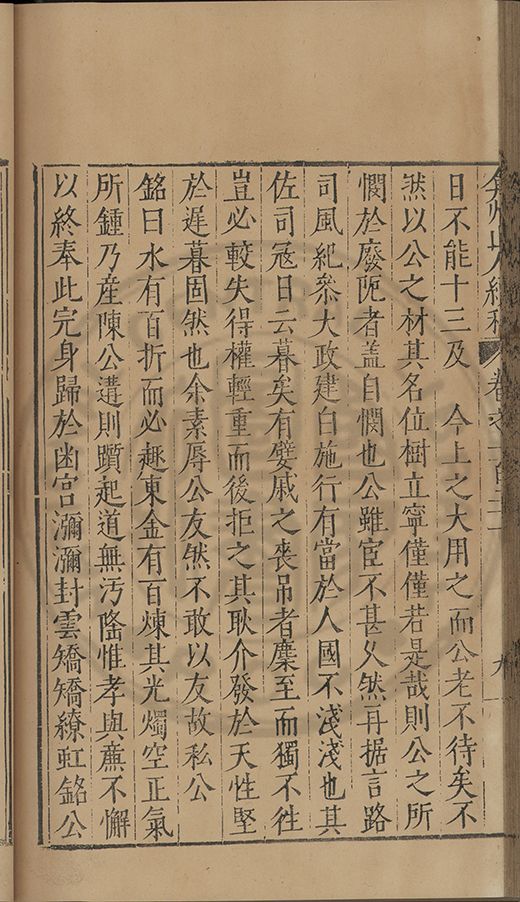 弇州山人續稿 卷之一百三十 九
日不能十三及　今上之大用之而公老不待矣不
然以公之材其名位樹立寧僅僅若是哉則公之所
憫於廢阨者盖自憫也公雖宦不甚久然再据言路
司風紀叅大政建白施行有當於人國不淺淺也其
佐司寇日云暮矣有嬖戚之丧吊者麇至而獨不徃
豈必較失得權輕重而後拒之其耿介發於天性堅
於遲暮固然也余素辱公友然不敢以友故私公
銘曰水有百折而必趣東金有百煉其光燭空正氣
所鍾乃産陳公遘則躓起道無汚隆惟孝與㢘不懈
以終奉此完身歸於幽宫瀰瀰封雲矯矯繚虹銘公